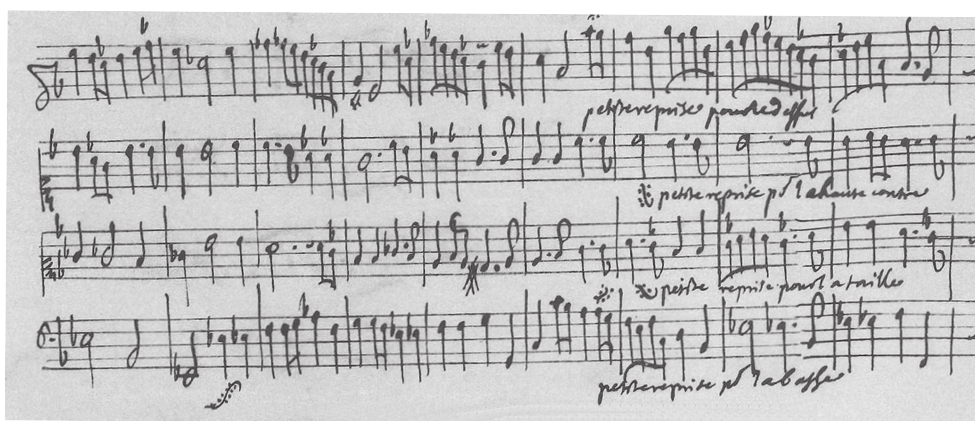 petite reprise pour le dessus
petite reprise pr la haute contre
petite reprise pour la taille
petite reprise pr la basse